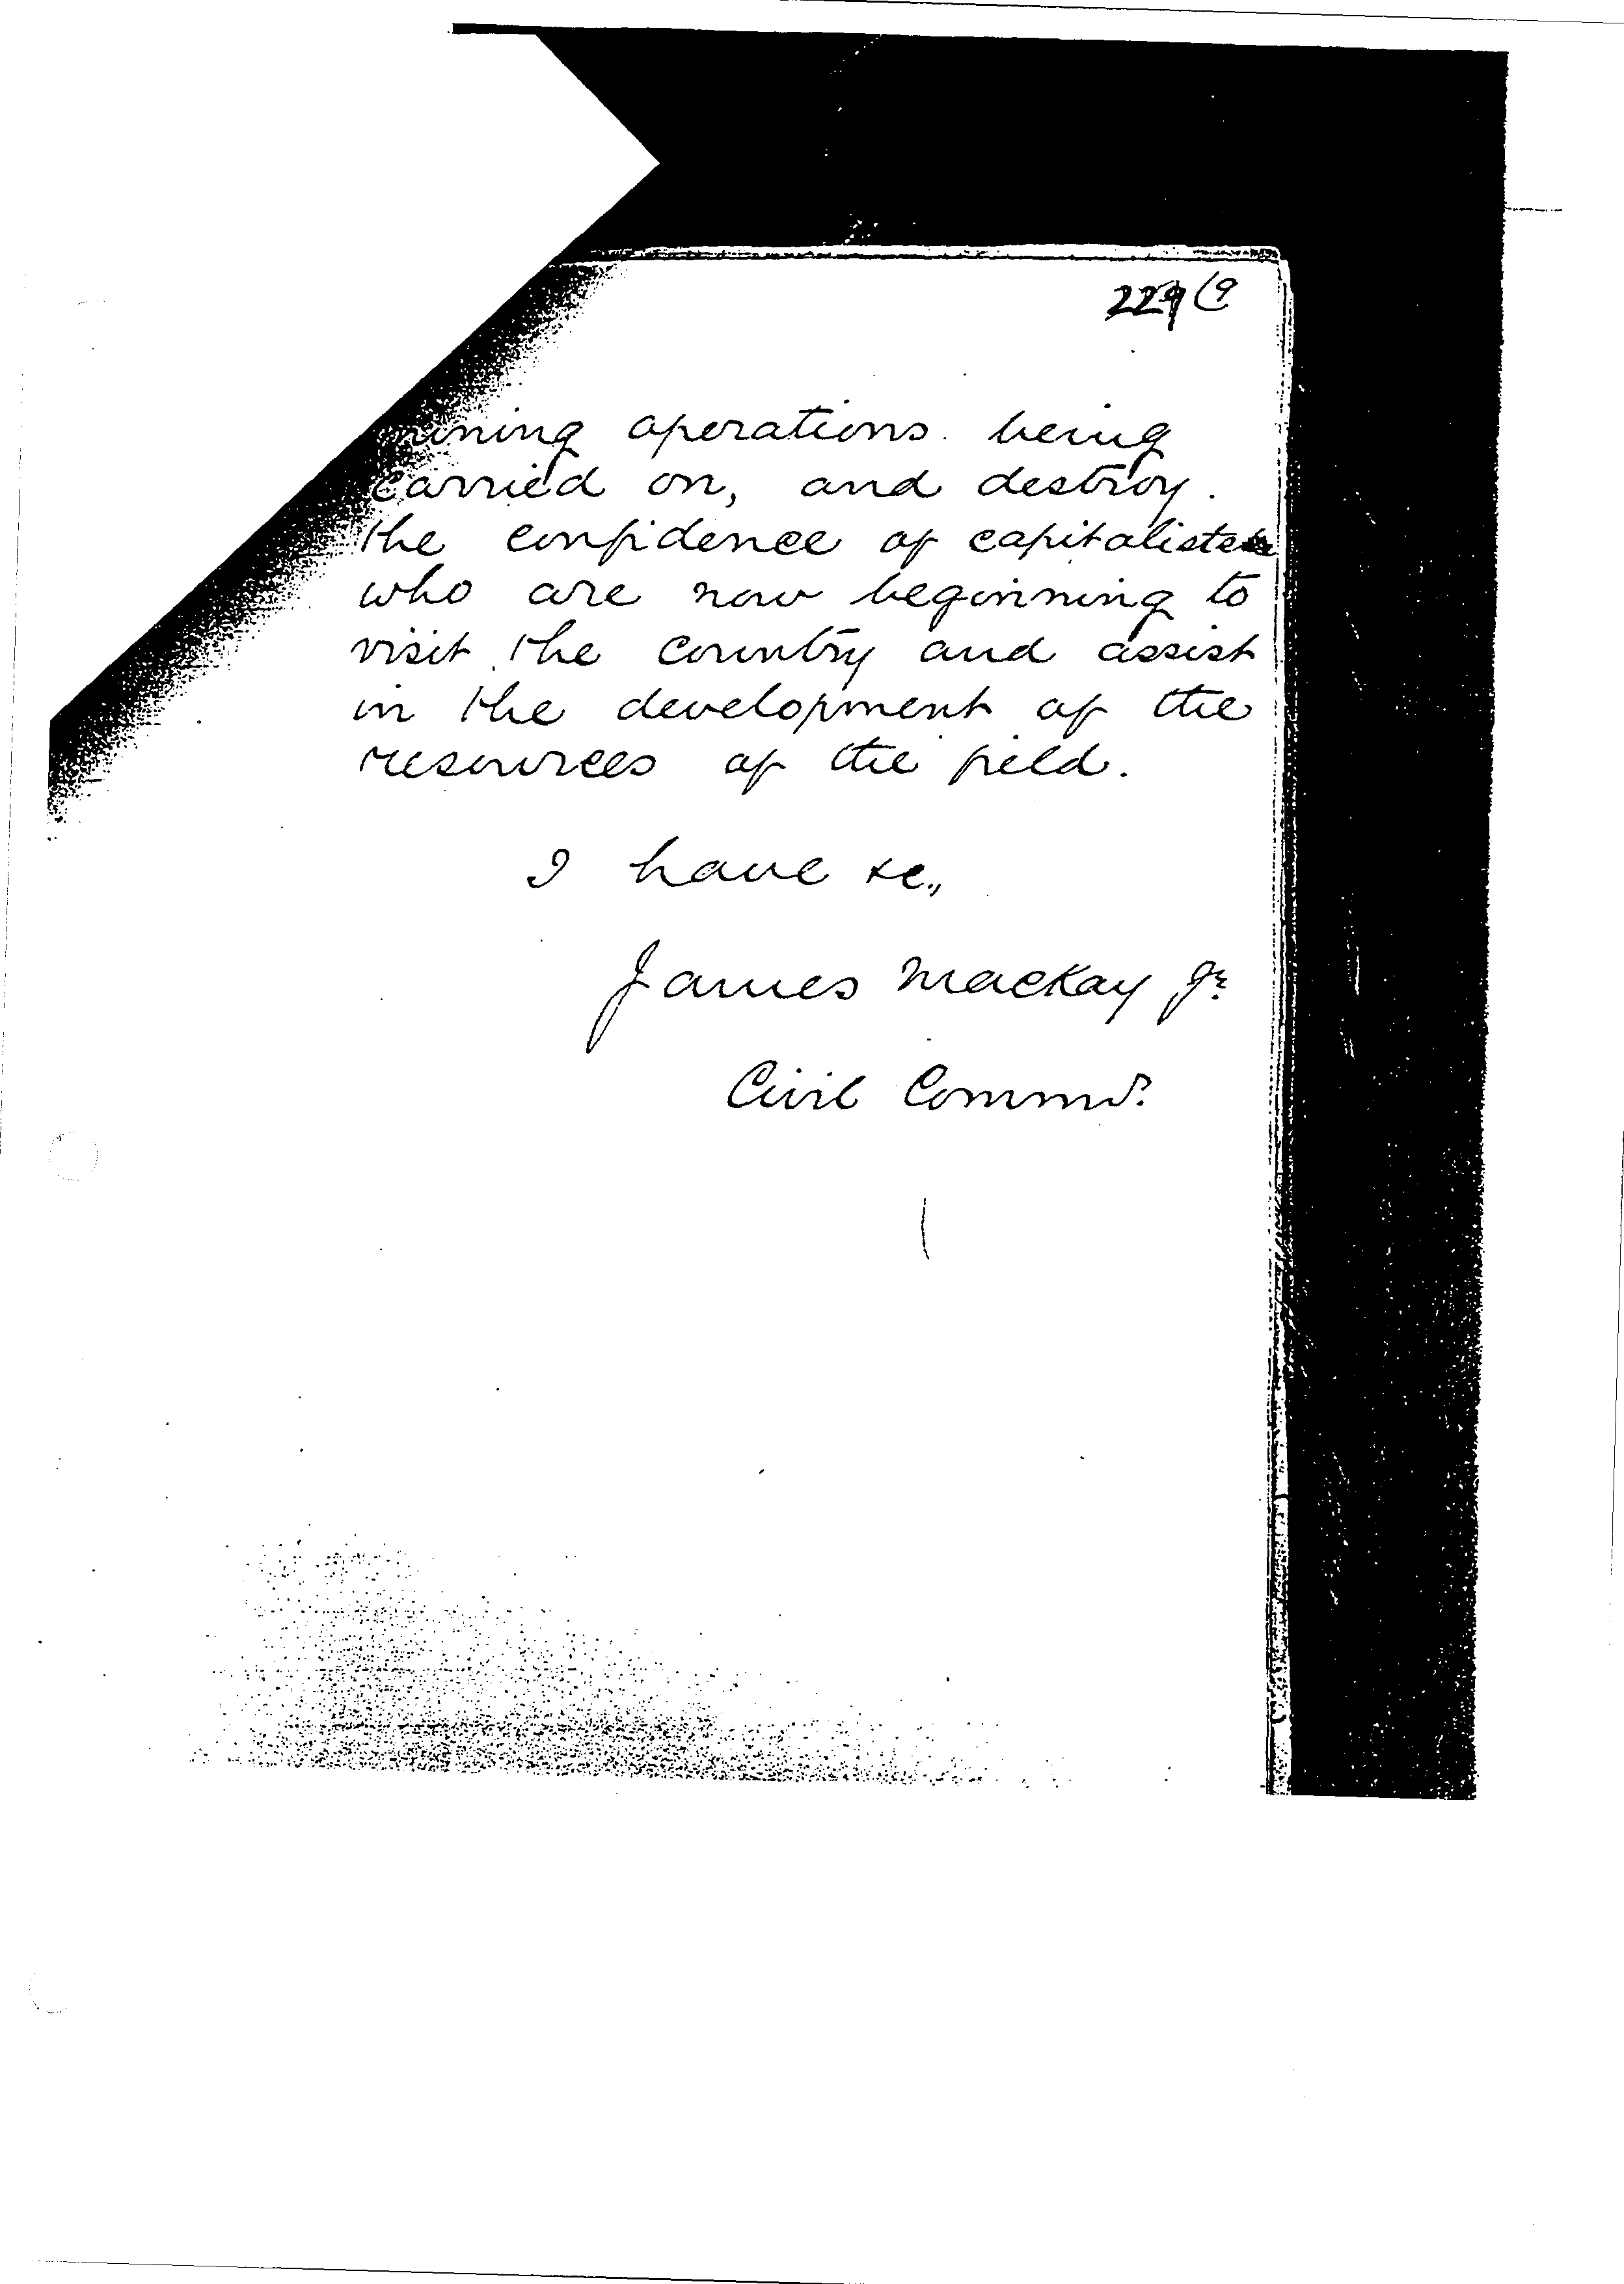 229 (9
mining operations being
carried on, and destroy
the confidence of capitalists
who are now beginning to
visit the country and assist
in the development of the
resources of the field.
I have &c.,
James Mackay Jr.
Civil Commr.